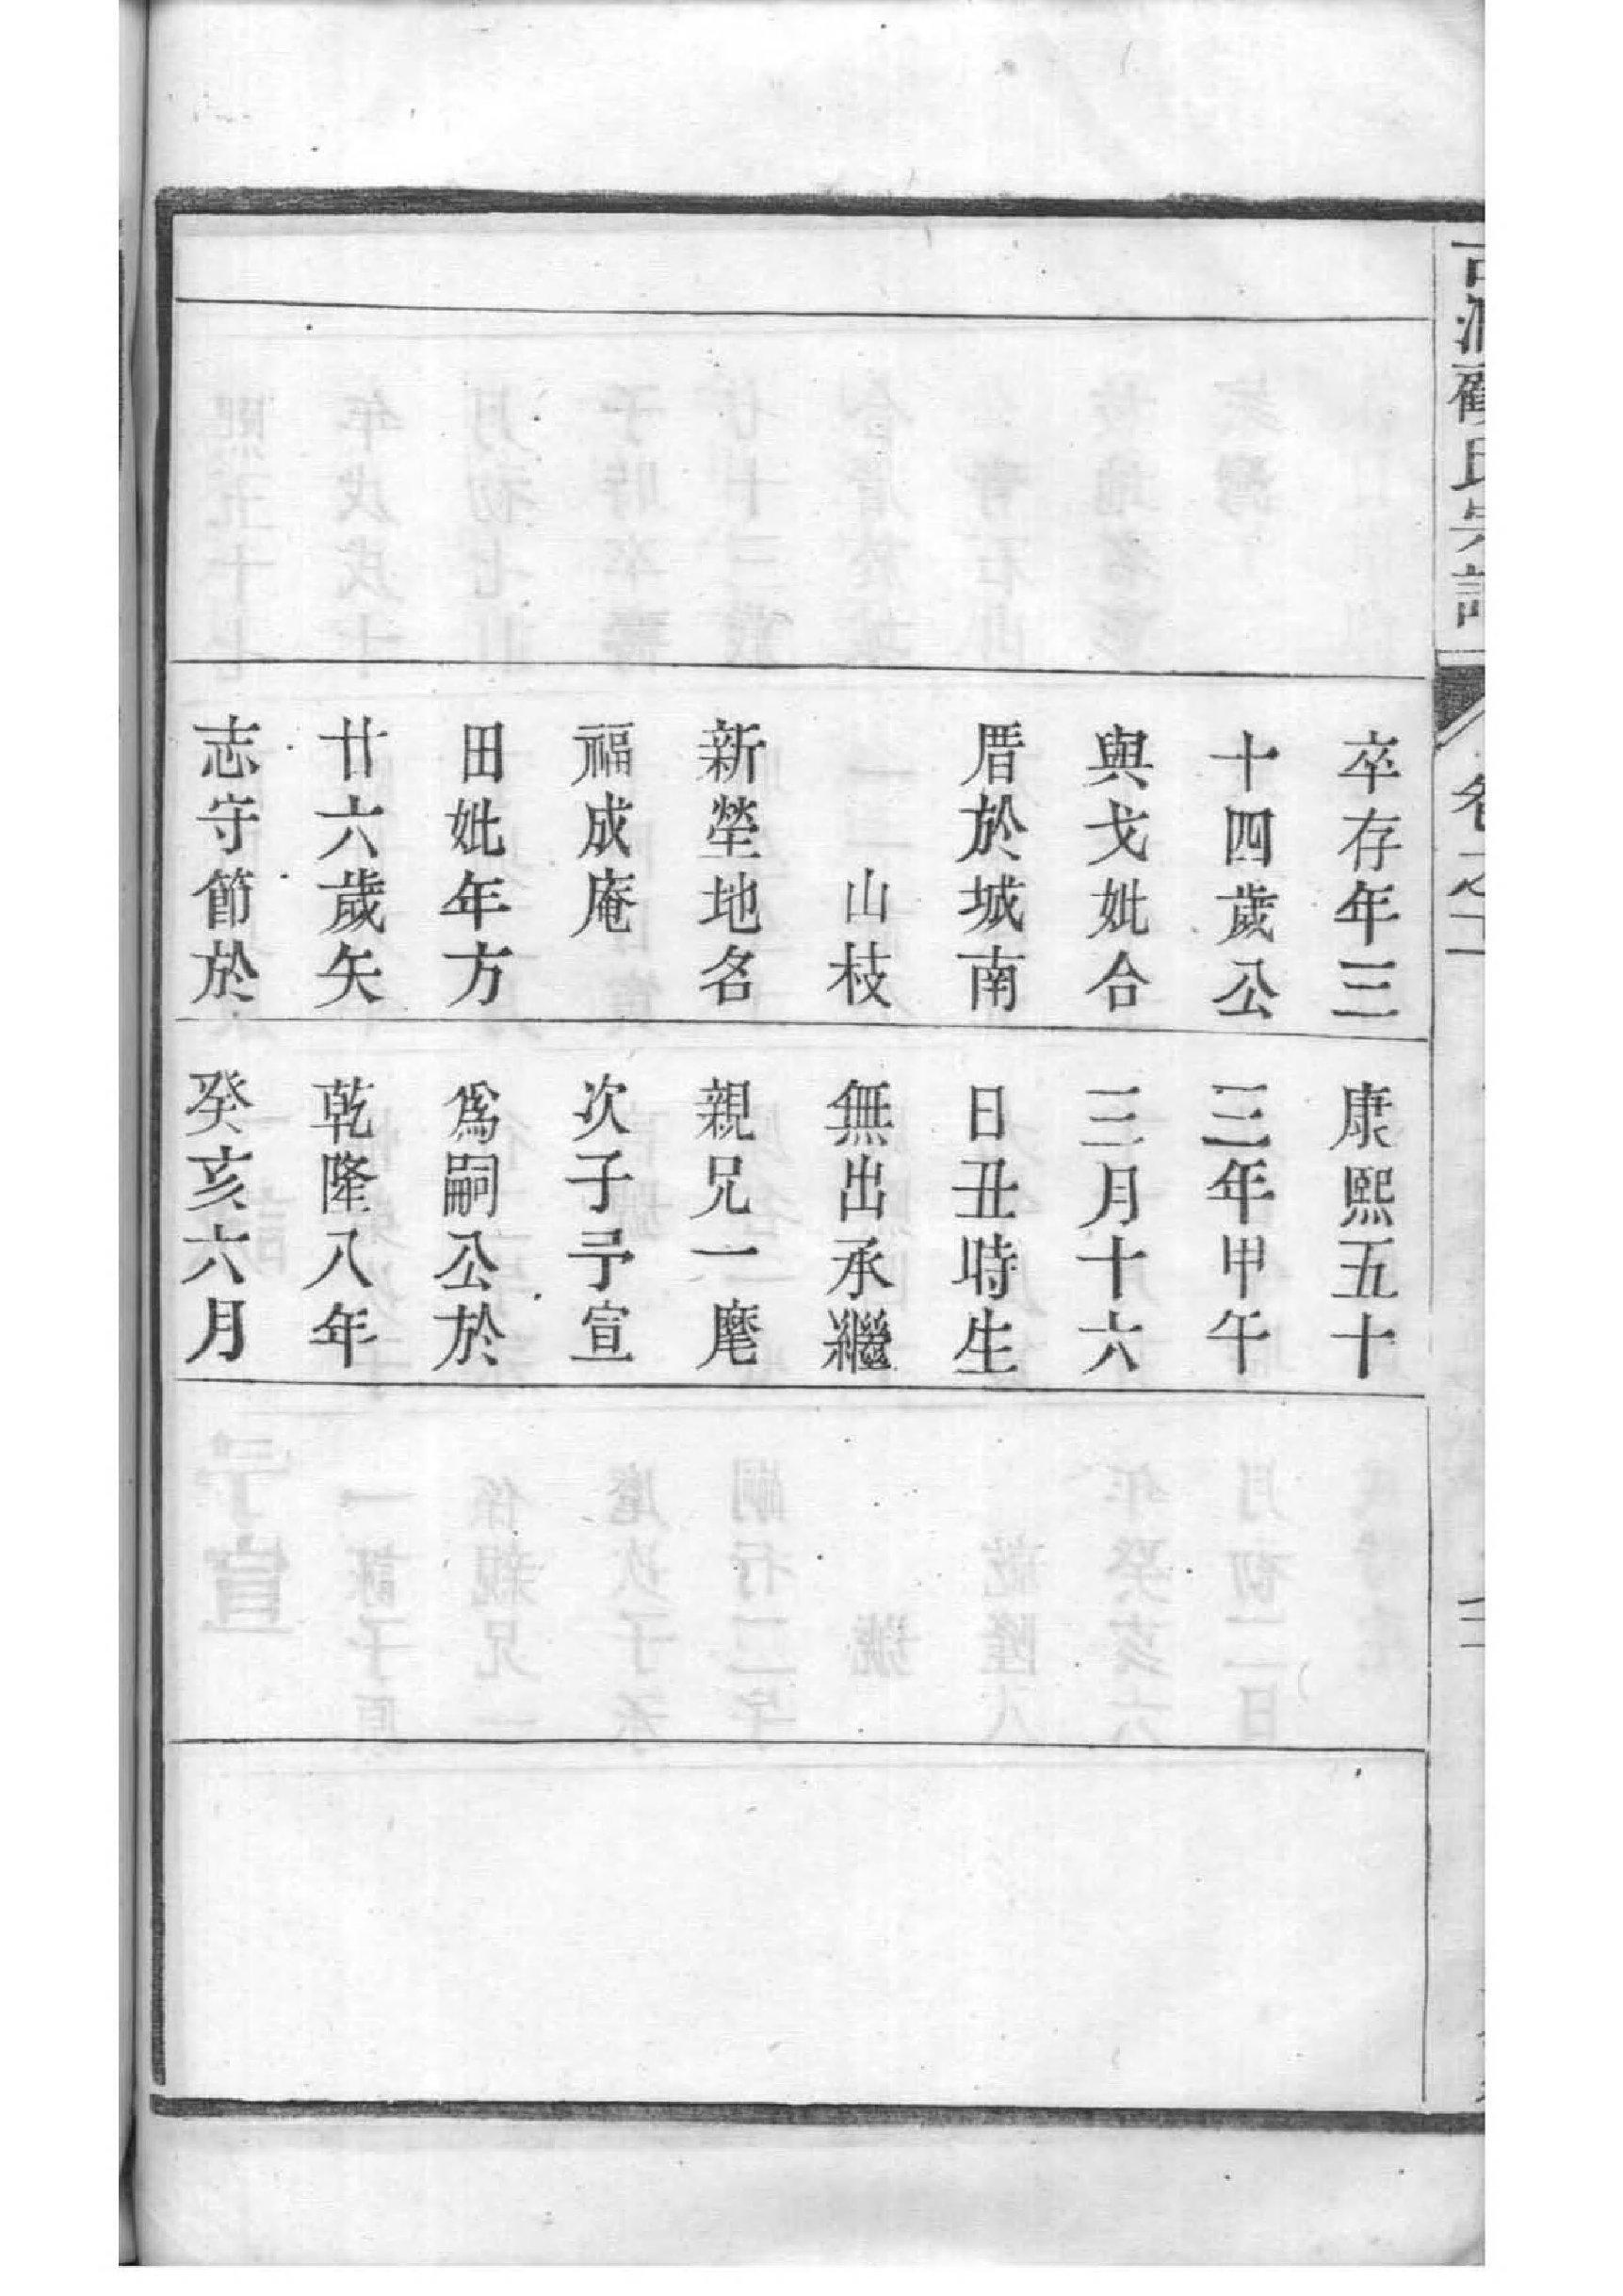 顧氏宗譜
卷之十
卒存年三
十四歲公
與戈妣合
厝於城南
山枝
新塋地名
福成庵
田妣年方
廿六歲矢
志守節於
康熙五十
三年甲午
三月十六
日丑時生
無出承繼
親兄一麾
次子予宣
爲嗣公於
乾隆八年
癸亥六月